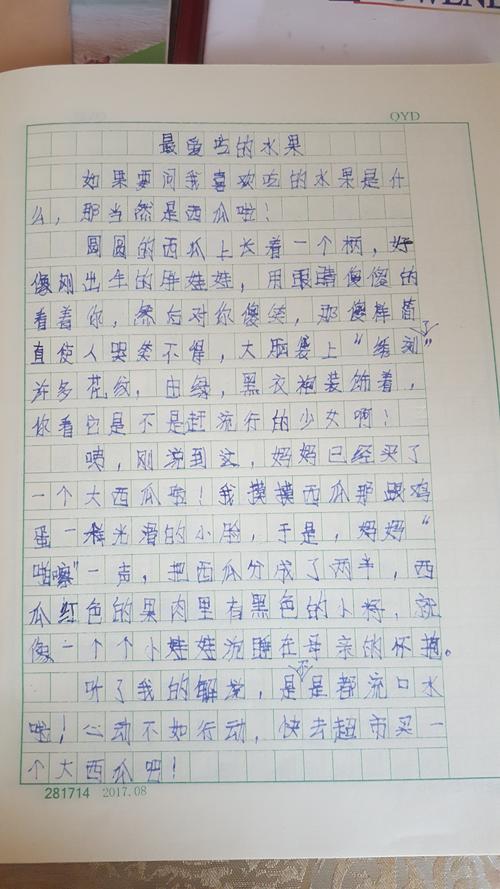 QYD
最爱吃的水果
如果要问我喜欢吃的水果是什
么，那当然是西瓜啦！
圆圆的西瓜上长着一个柄，好
像刚出生的胖娃娃，用眼睛傻傻的
看着你，然后对你傻笑，那傻样简
直使人哭笑不得，大脑袋上“绣刻了”
许多花纹，由绿，黑衣袍装饰着，
你看它是不是赶流行的少女啊！
咦，刚说到这，妈妈已经买了
一个大西瓜啦！我摸摸西瓜那跟鸡
蛋一样光滑的小脸，于是，妈妈“
咕嚓”一声，把西瓜分成了两半，西
瓜红色的果肉里有黑色的小籽，就
像一个个小娃娃沉睡在母亲的怀抱。
听了我的解说，是不是都流口水
啦！心动不如行动，快去超市买一
个大西瓜吧！
281714 2017.08